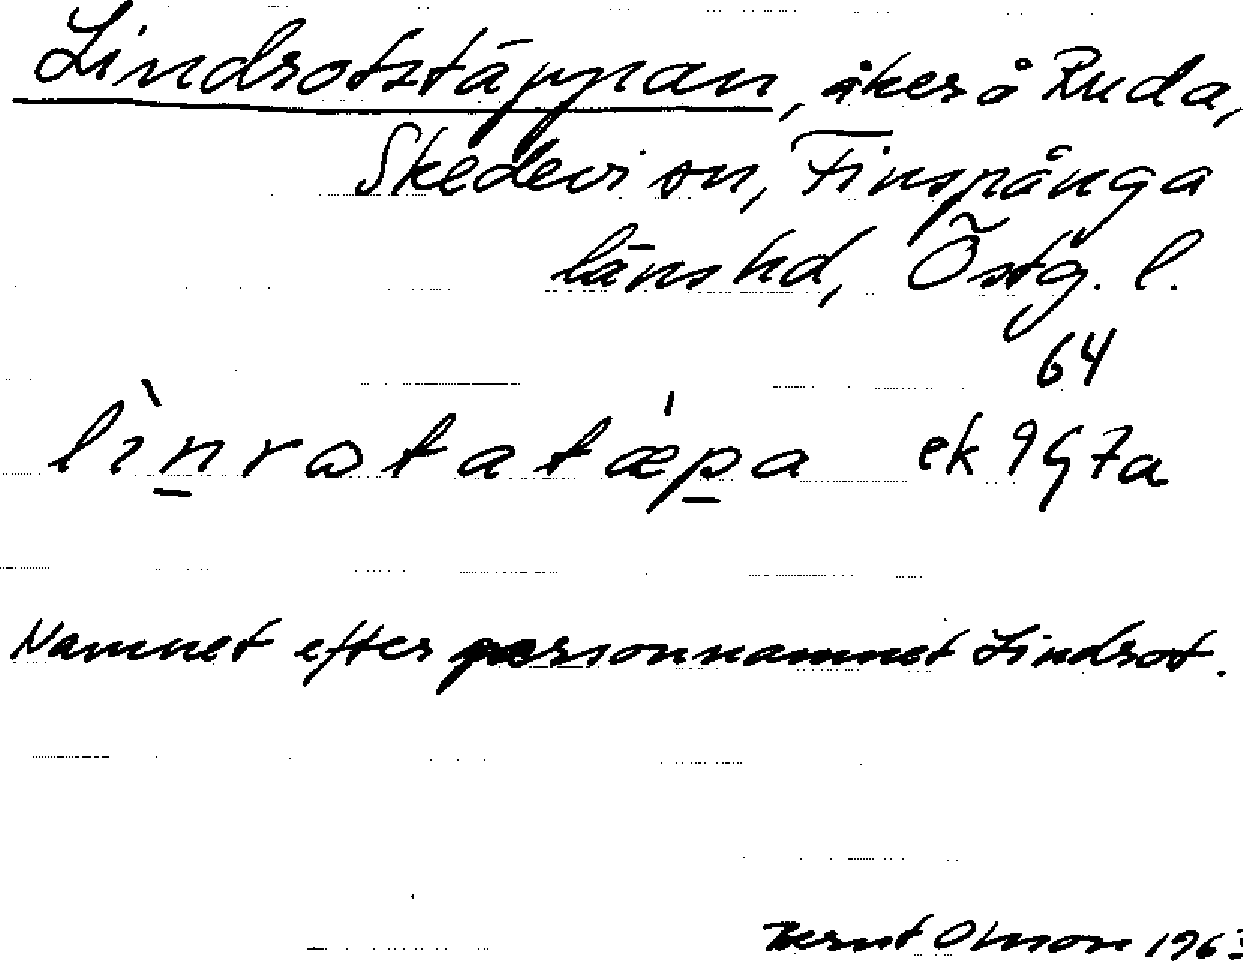 Lindrotstäppan, åker å Ruda,
Skedevi sn, Finspånga
länshd, Östg. l.
64
lìnrotatǽpa ek 9G7a
Namnet efter personnamnet Lindrot.
Bernt Olsson 1963